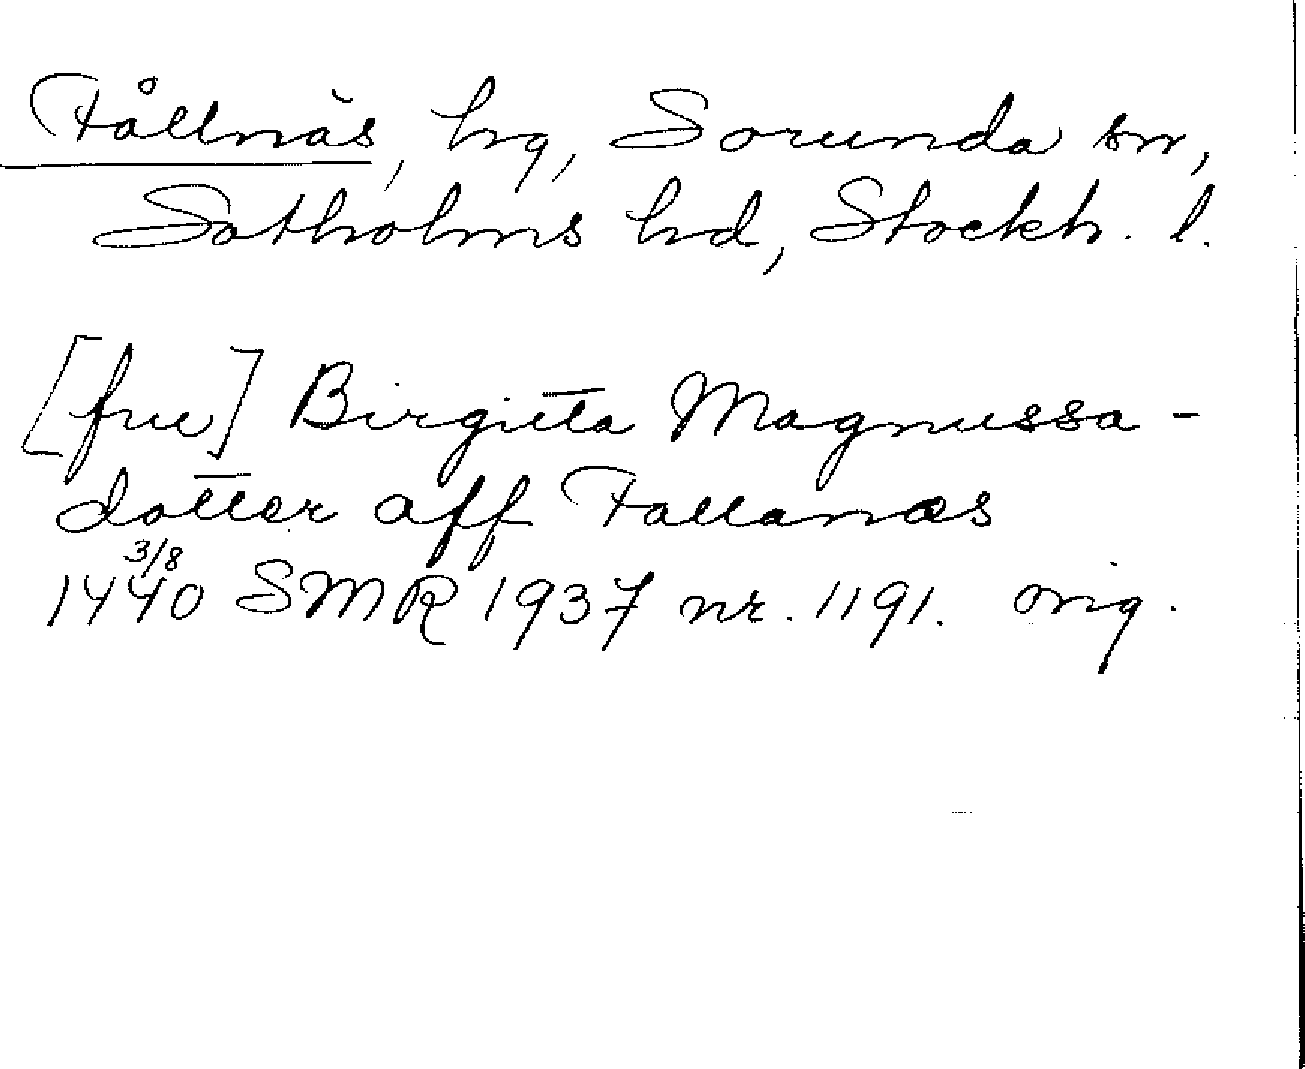 Fållnäs, hrg, Sorunda sn,
Sotholms hd, Stockh. l.
[frue] Birgitta Magnussa-
dotter aff Fallanæs
3/8
1440 SMR 1937 nr. 1191. orig.